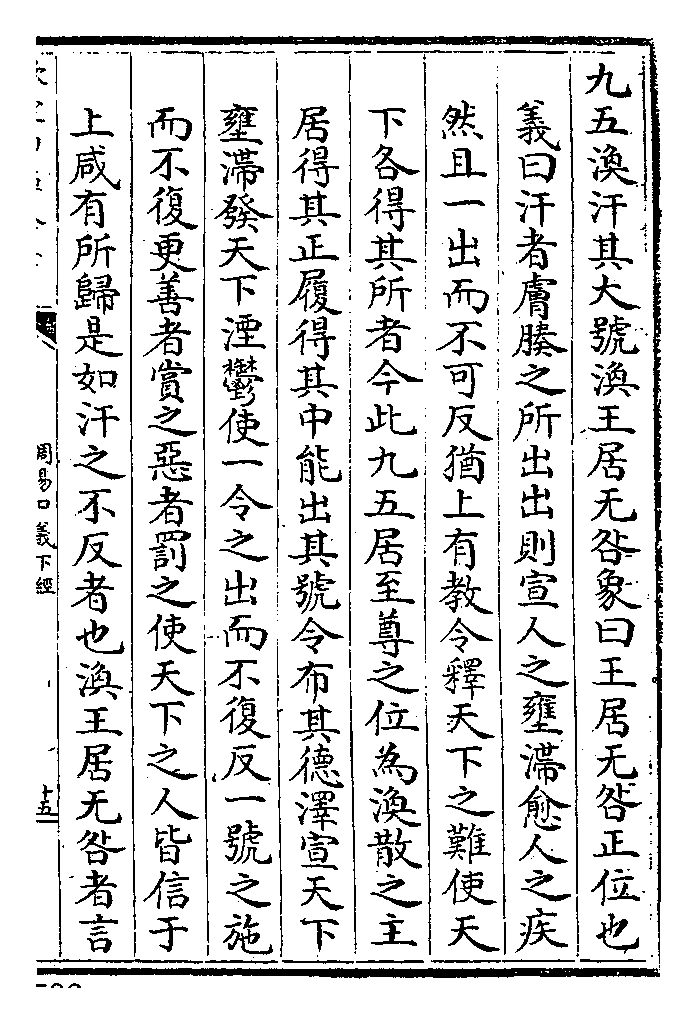 九五渙汗其大號渙王居无咎象曰王居无咎正位也
義曰汗者膚腠之所出出則宣人之壅滯愈人之疾
然且一出而不可反猶上有教令釋天下之難使天
下各得其所者今此九五居至尊之位為渙散之主
居得其正履得其中能出其號令布其德澤宣天下
壅滯發天下湮鬱使一令之出而不復反一號之施
而不復更善者賞之惡者罰之使天下之人皆信于
上咸有所歸是如汗之不反者也渙王居无咎者言
周易口義下經
十五